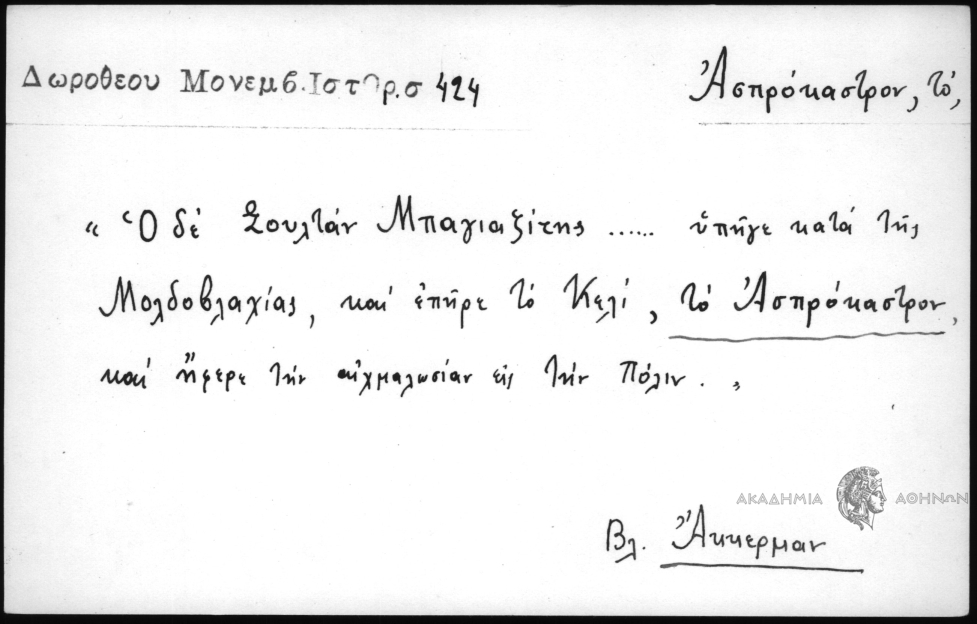 Δωροθεου Μονεμβ.Ιστορ.σ 424
Ἀσπρόκαστρον, τό,
" Ὁ δέ Σουλτάν Μπαγιαζίτης ...... ὑπῆγε κατά τῆς
Μολδοβλαχίας, καί ἐπῆρε τό Κελί, τό Ἀσπρόκαστρον,
καί ἤφερε τήν αἰχμαλωσίαν εἰς τήν Πόλιν. "
ΑΚΑΔΗΜΙΑ ΑΘΗΝΩΝ
Βλ. Ἄκκερμαν